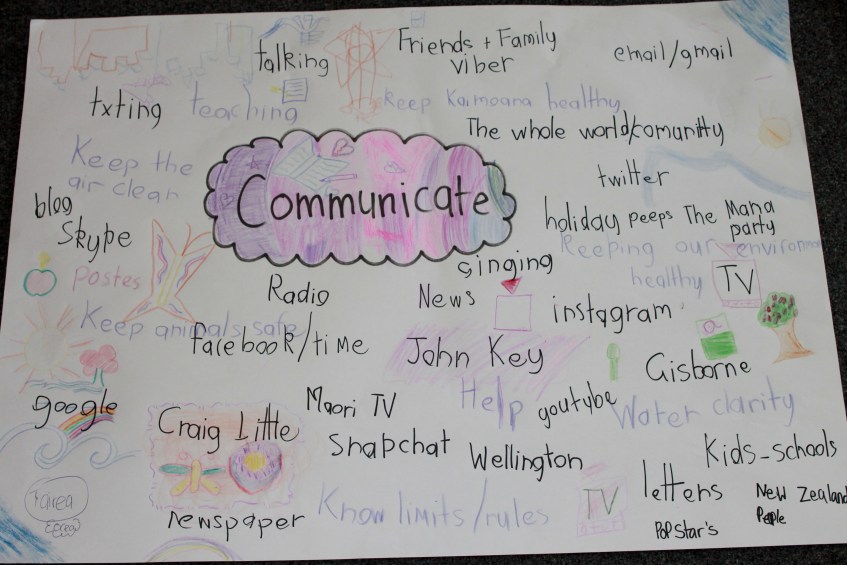 talking
Friends + Family
viber
email/gmail
txting
teaching
Keep Kaimoana healthy
The whole world/comunitty
Keep the
air clean
Communicate
twitter
blog
Skype
holiday peeps
The Mana
party
Keeping our environment
healthy
TV
Postes
singing
Radio
News
instagram
Keep animals safe
facebook/time
John Key
Gisborne
google
Maori TV
Help
youtube
Water clarity
Craig Little
Snapchat
Wellington
Kids-schools
area
letters
New Zealand
People
newspaper
Know limits/rules
TV
PoP Star's